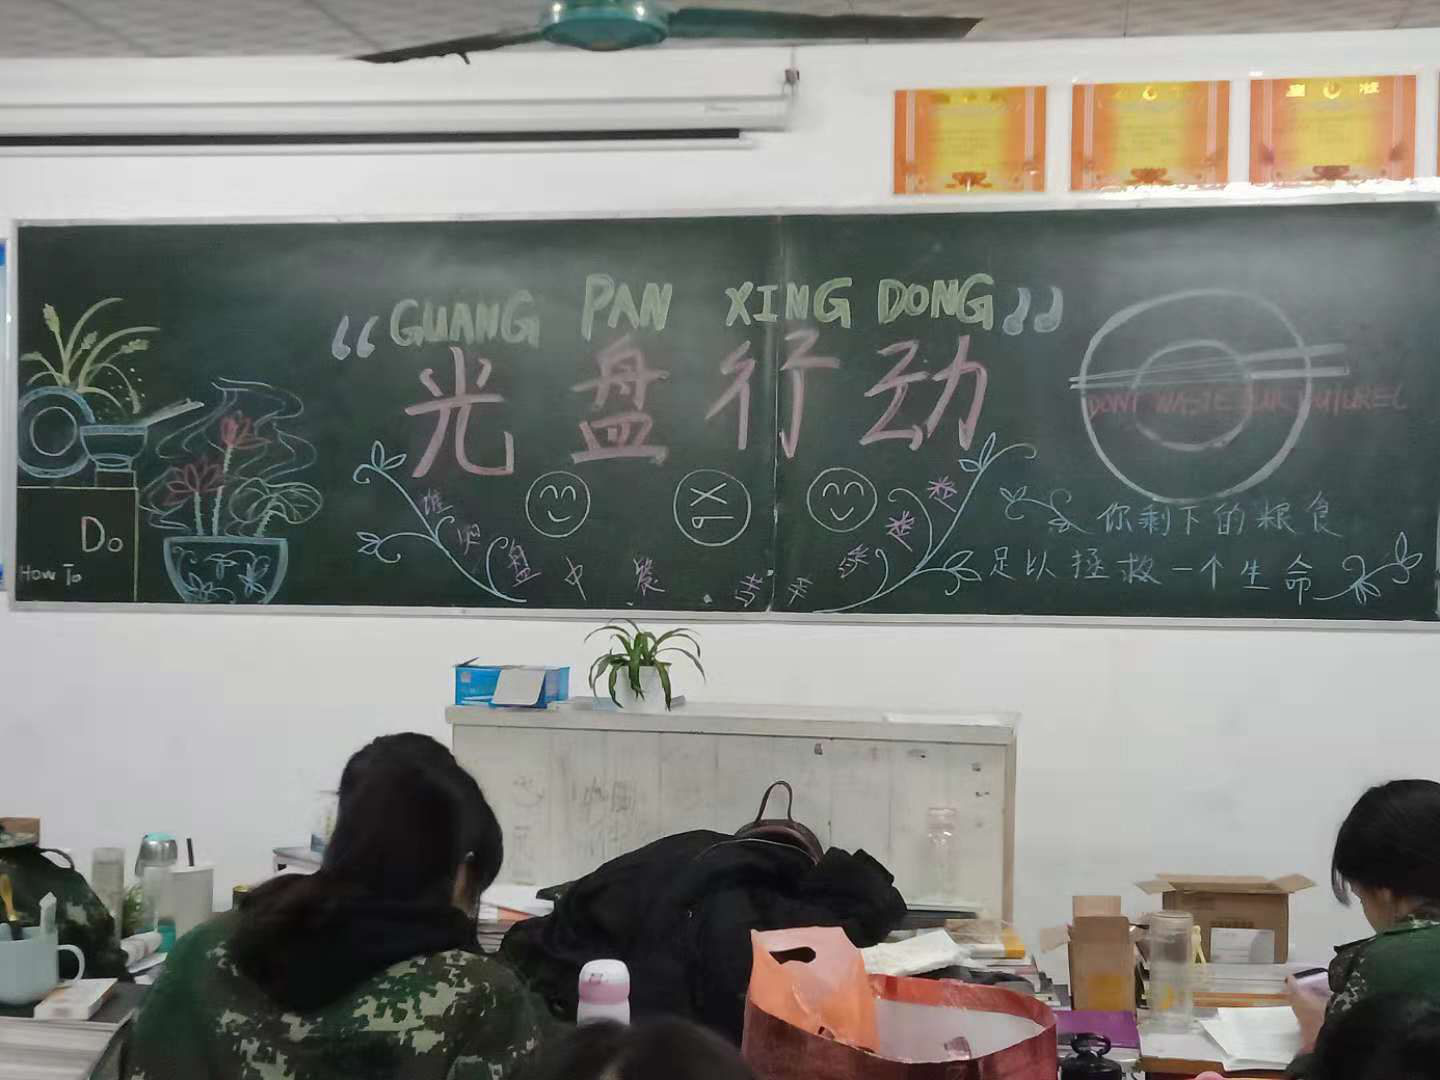 “GUANG PAN XING DONG”
光盘行动
谁知盘中餐
粒粒
DONT WASTE OUR FUTURE!
你剩下的粮食
足以拯救一个生命
Do
How To